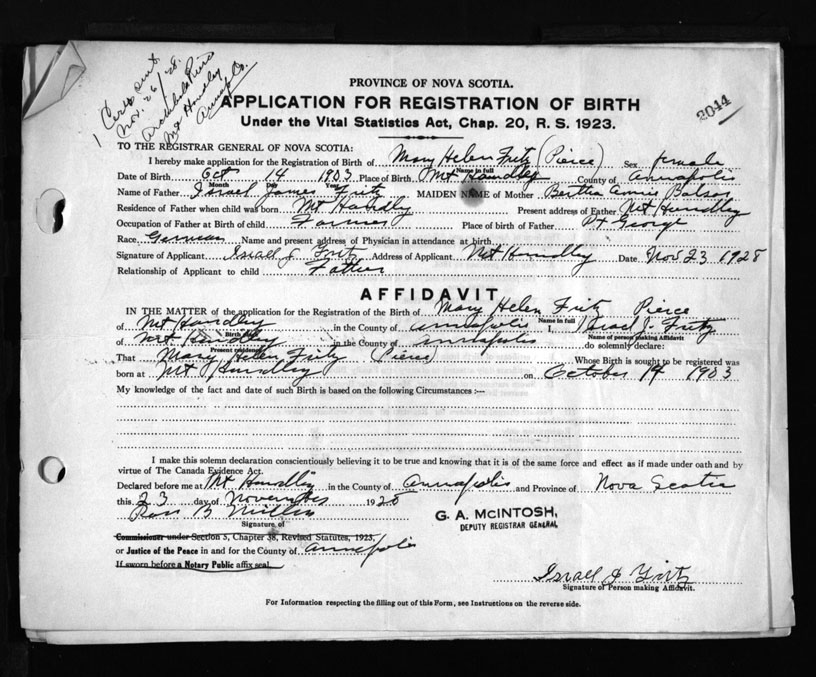 1 Cert sent
Nov. 26/28.
Mt Handley
Annap. Co.
2044
PROVINCE OF NOVA SCOTIA.
APPLICATION FOR REGISTRATION OF BIRTH
Under the Vital Statistics Act, Chap. 20, R. S. 1923.
TO THE REGISTRAR GENERAL OF NOVA SCOTIA:
I hereby make application for the Registration of Birth of Mary Helen Fritz (Pierce) Sex female
Name in full
Date of Birth Oct 14 1903 Place of Birth Mt Handley County of Annapolis
Month Day Year
Name of Father Israel James Fritz MAIDEN NAME of Mother Bertha Annie
Residence of Father when child was born Mt Handly Present address of Father Mt Handley
Occupation of Father at Birth of child Farmer Place of birth of Father Pt George
Race German Name and present address of Physician in attendance at birth
Signature of Applicant Israel J Fritz Address of Applicant Mt Handley Date Nov 23 1928
Relationship of Applicant to child Father
AFFIDAVIT
IN THE MATTER of the application for the Registration of the Birth of Mary Helen Fritz Pierce
Name in full
of Mt Handley in the County of Annapolis I, Israel J. Fritz
Birth place Name of person making Affidavit
of Mt Handley in the County of Annapolis do solemnly declare:
Present residence
That Mary Helen Fritz (Pierce) Whose Birth is sought to be registered was
born at Mt Handley on October 14 1903
My knowledge of the fact and date of such Birth is based on the following Circumstances :—
I make this solemn declaration conscientiously believing it to be true and knowing that it is of the same force and effect as if made under oath and by
virtue of The Canada Evidence Act.
Declared before me at Mt Handley in the County of Annapolis and Province of Nova Scotia
this 23 day of November 1928
Ross B Miller
Signature of
G. A. McINTOSH,
DEPUTY REGISTRAR GENERAL
Commissioner under Section 3, Chapter 38, Revised Statutes, 1923,
or Justice of the Peace in and for the County of Annapolis
If sworn before a Notary Public affix seal.
Israel J Fritz
Signature of Person making Affidavit.
For Information respecting the filling out of this Form, see Instructions on the reverse side.